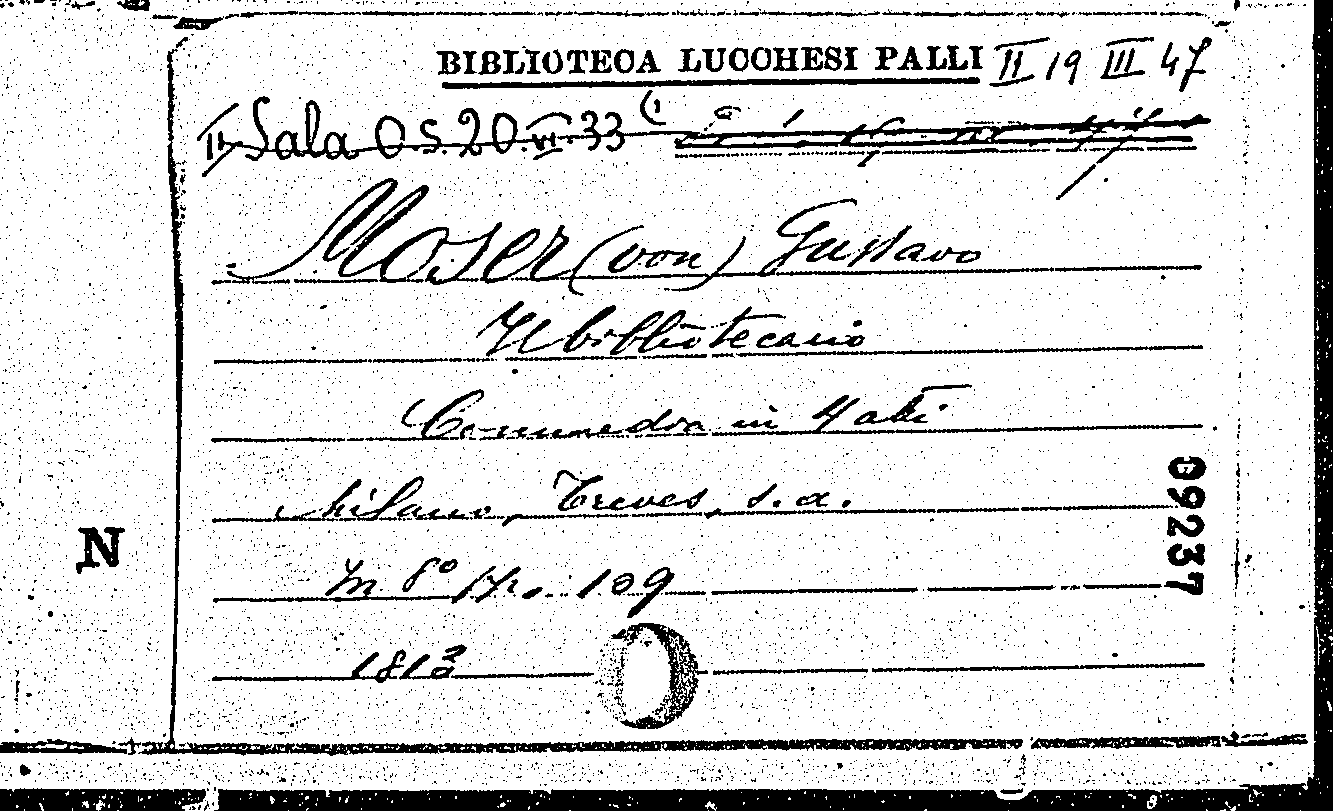 BIBLIOTECA LUCCHESI PALLI II 19 III 47
II Sala O.S. 20.VI.33 (1
Moser (von) Gustavo
Il bibliotecario
Commedia in 4 atti
Milano, Treves, s.a.
In 8° pp. 109
1813
N
09237